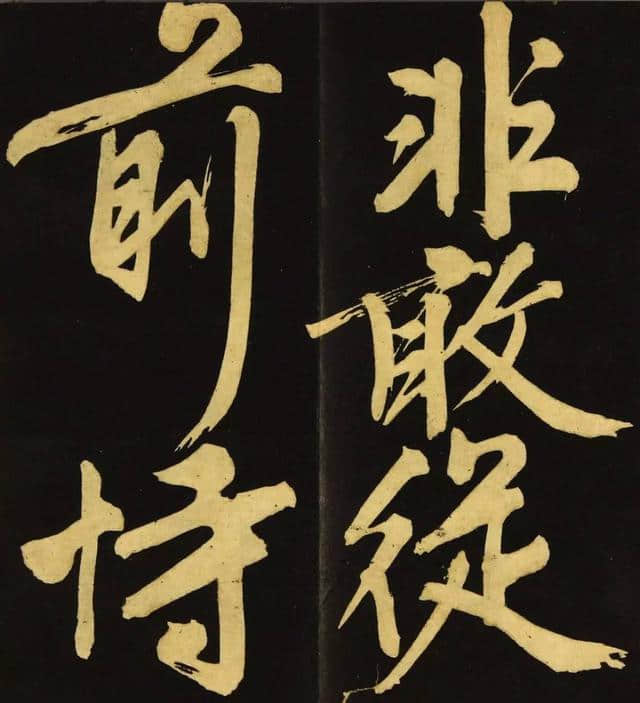 非敢從
前恃